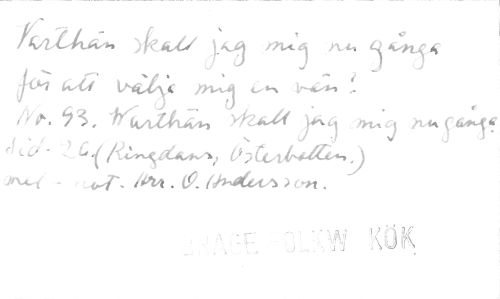 Varthän skall jag mig nu gånga
för att välja mig en vän?
No. 93. Warthän skall jag mig nu gånga
sid. 26. (Ringdans, Österbotten.)
mel - not. Arr. O. Andersson.
BRAGE FOLKW KÖK